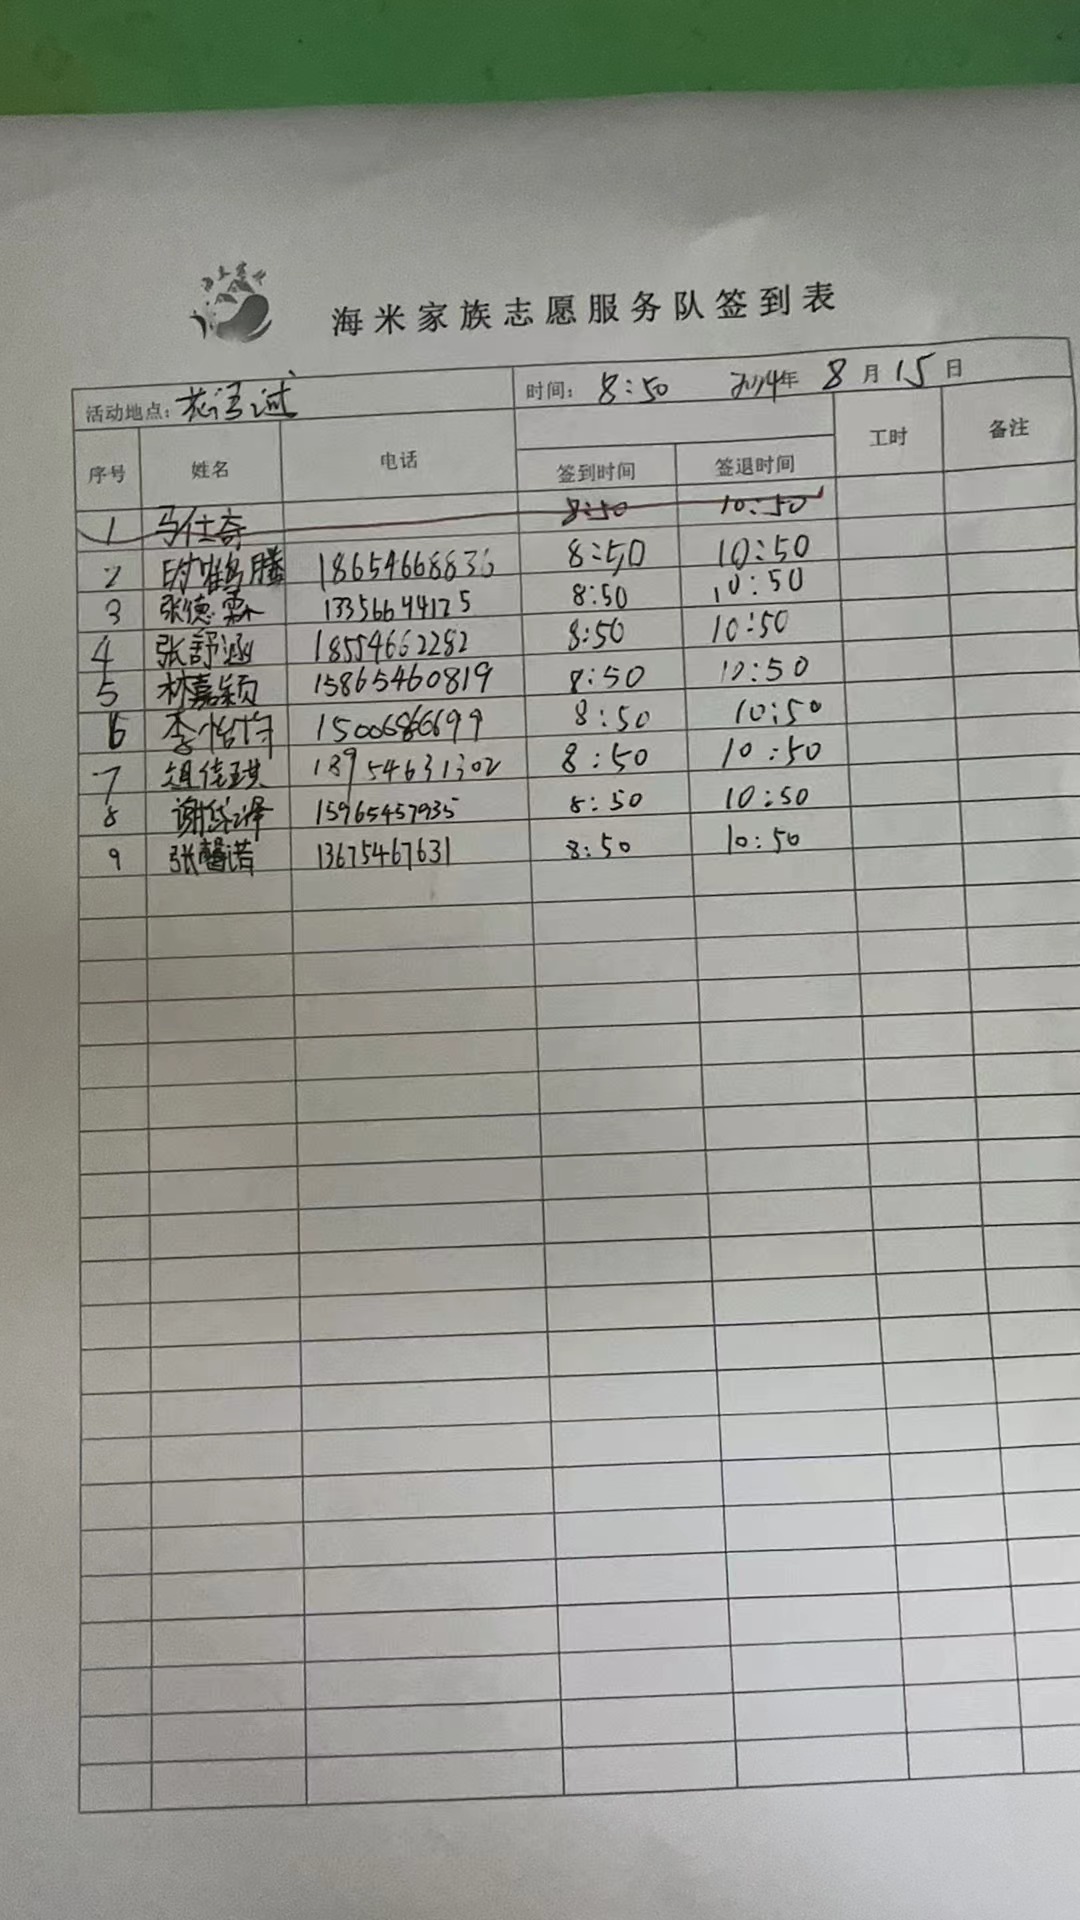 海米家族志愿服务队签到表
活动地点: 时间: 8:50 2024年 8月15日
序号 姓名 电话 签到时间 签退时间 工时 备注
1 马仕奇 8:50 10:50
2 鹤腾 18654668836 8:50 10:50
3 张德霖 13356644125 8:50 10:50
4 张舒涵 18554662282 8:50 10:50
5 林嘉颖 15865460819 8:50 10:50
6 李怡均 15006866699 8:50 10:50
7 佳琪 18954631302 8:50 10:50
8 谢 泽 15965457935 8:50 10:50
9 张馨诺 13675467631 8:50 10:50